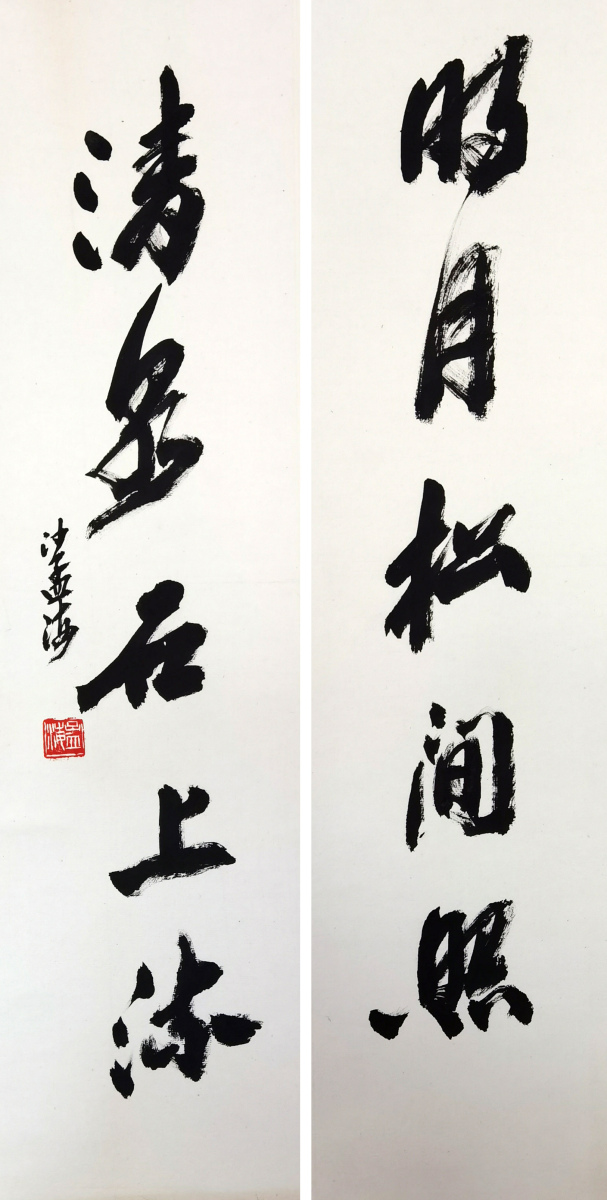 明月松间照
清泉石上流
沙孟海
孟海